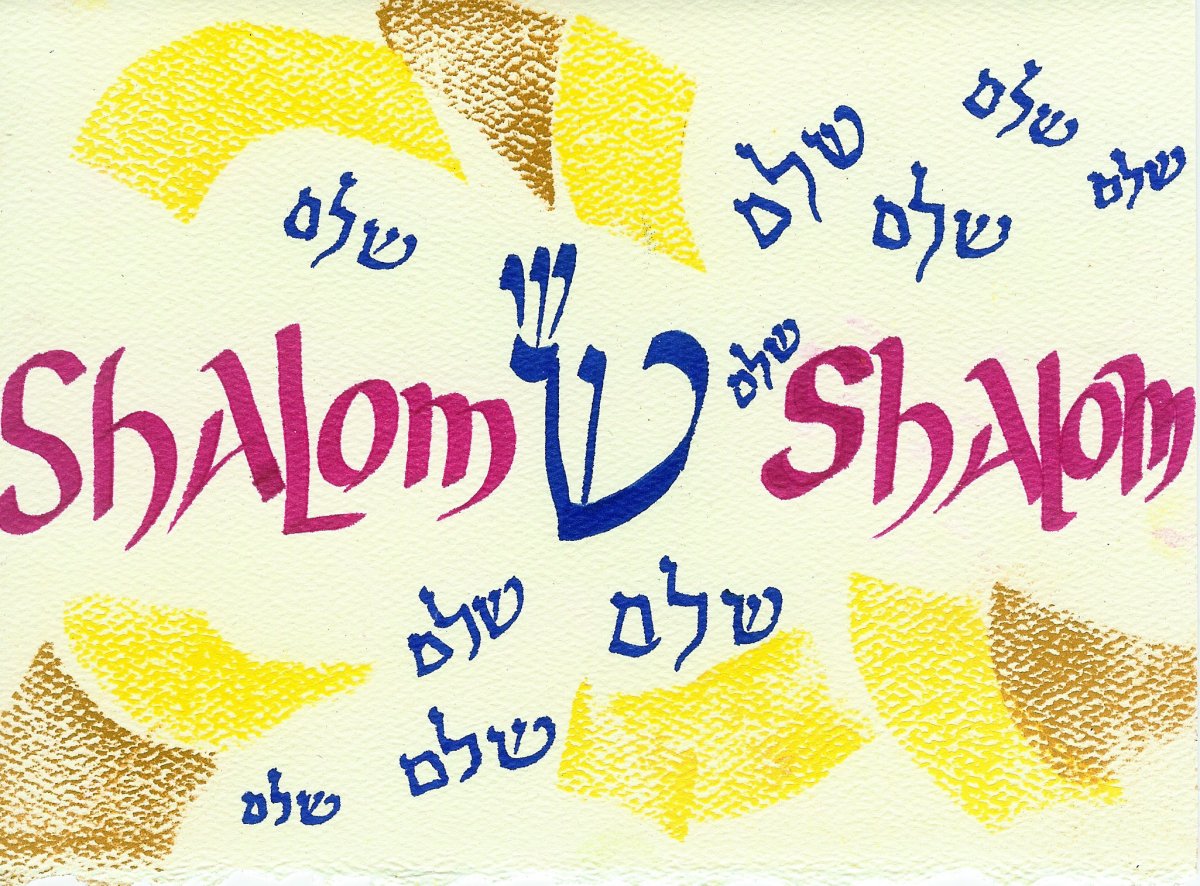 שלם
שלם
שלם
שלם
שלם
Shalom ש שלם Shalom
שלם
שלם
שלם
שלם